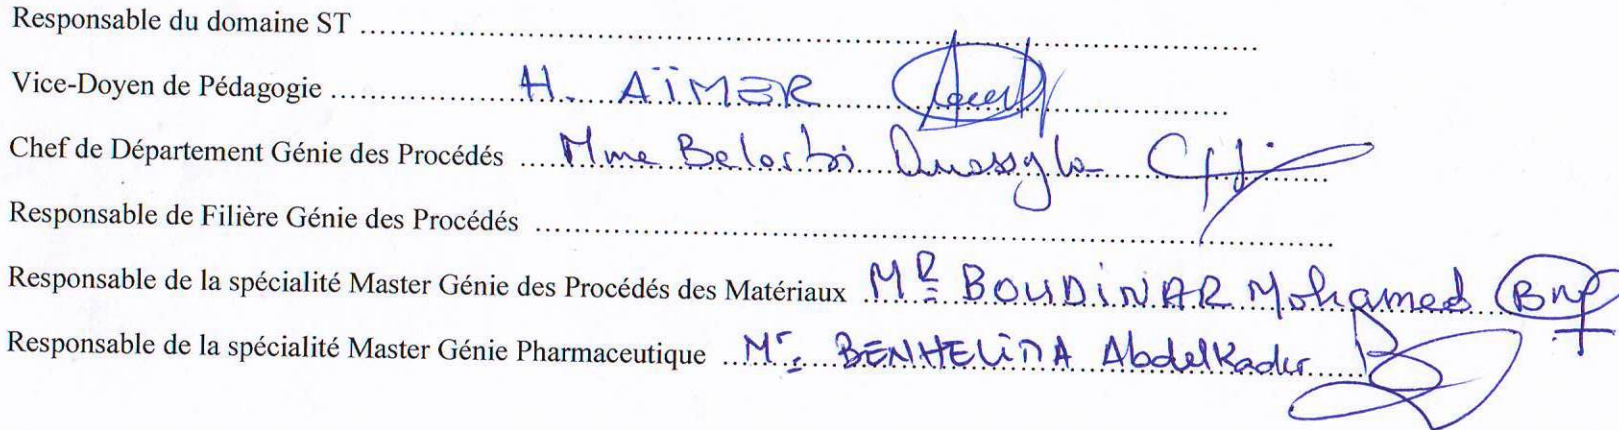 Responsable du domaine ST ................................................
Vice-Doyen de Pédagogie ................ H. AÏMER ................
Chef de Département Génie des Procédés .... Mme Belarbi ................
Responsable de Filière Génie des Procédés ................................................
Responsable de la spécialité Master Génie des Procédés des Matériaux ... MR BOUDiNAR Mohamed
Responsable de la spécialité Master Génie Pharmaceutique ... Mr BENHELiMA AbdelKader